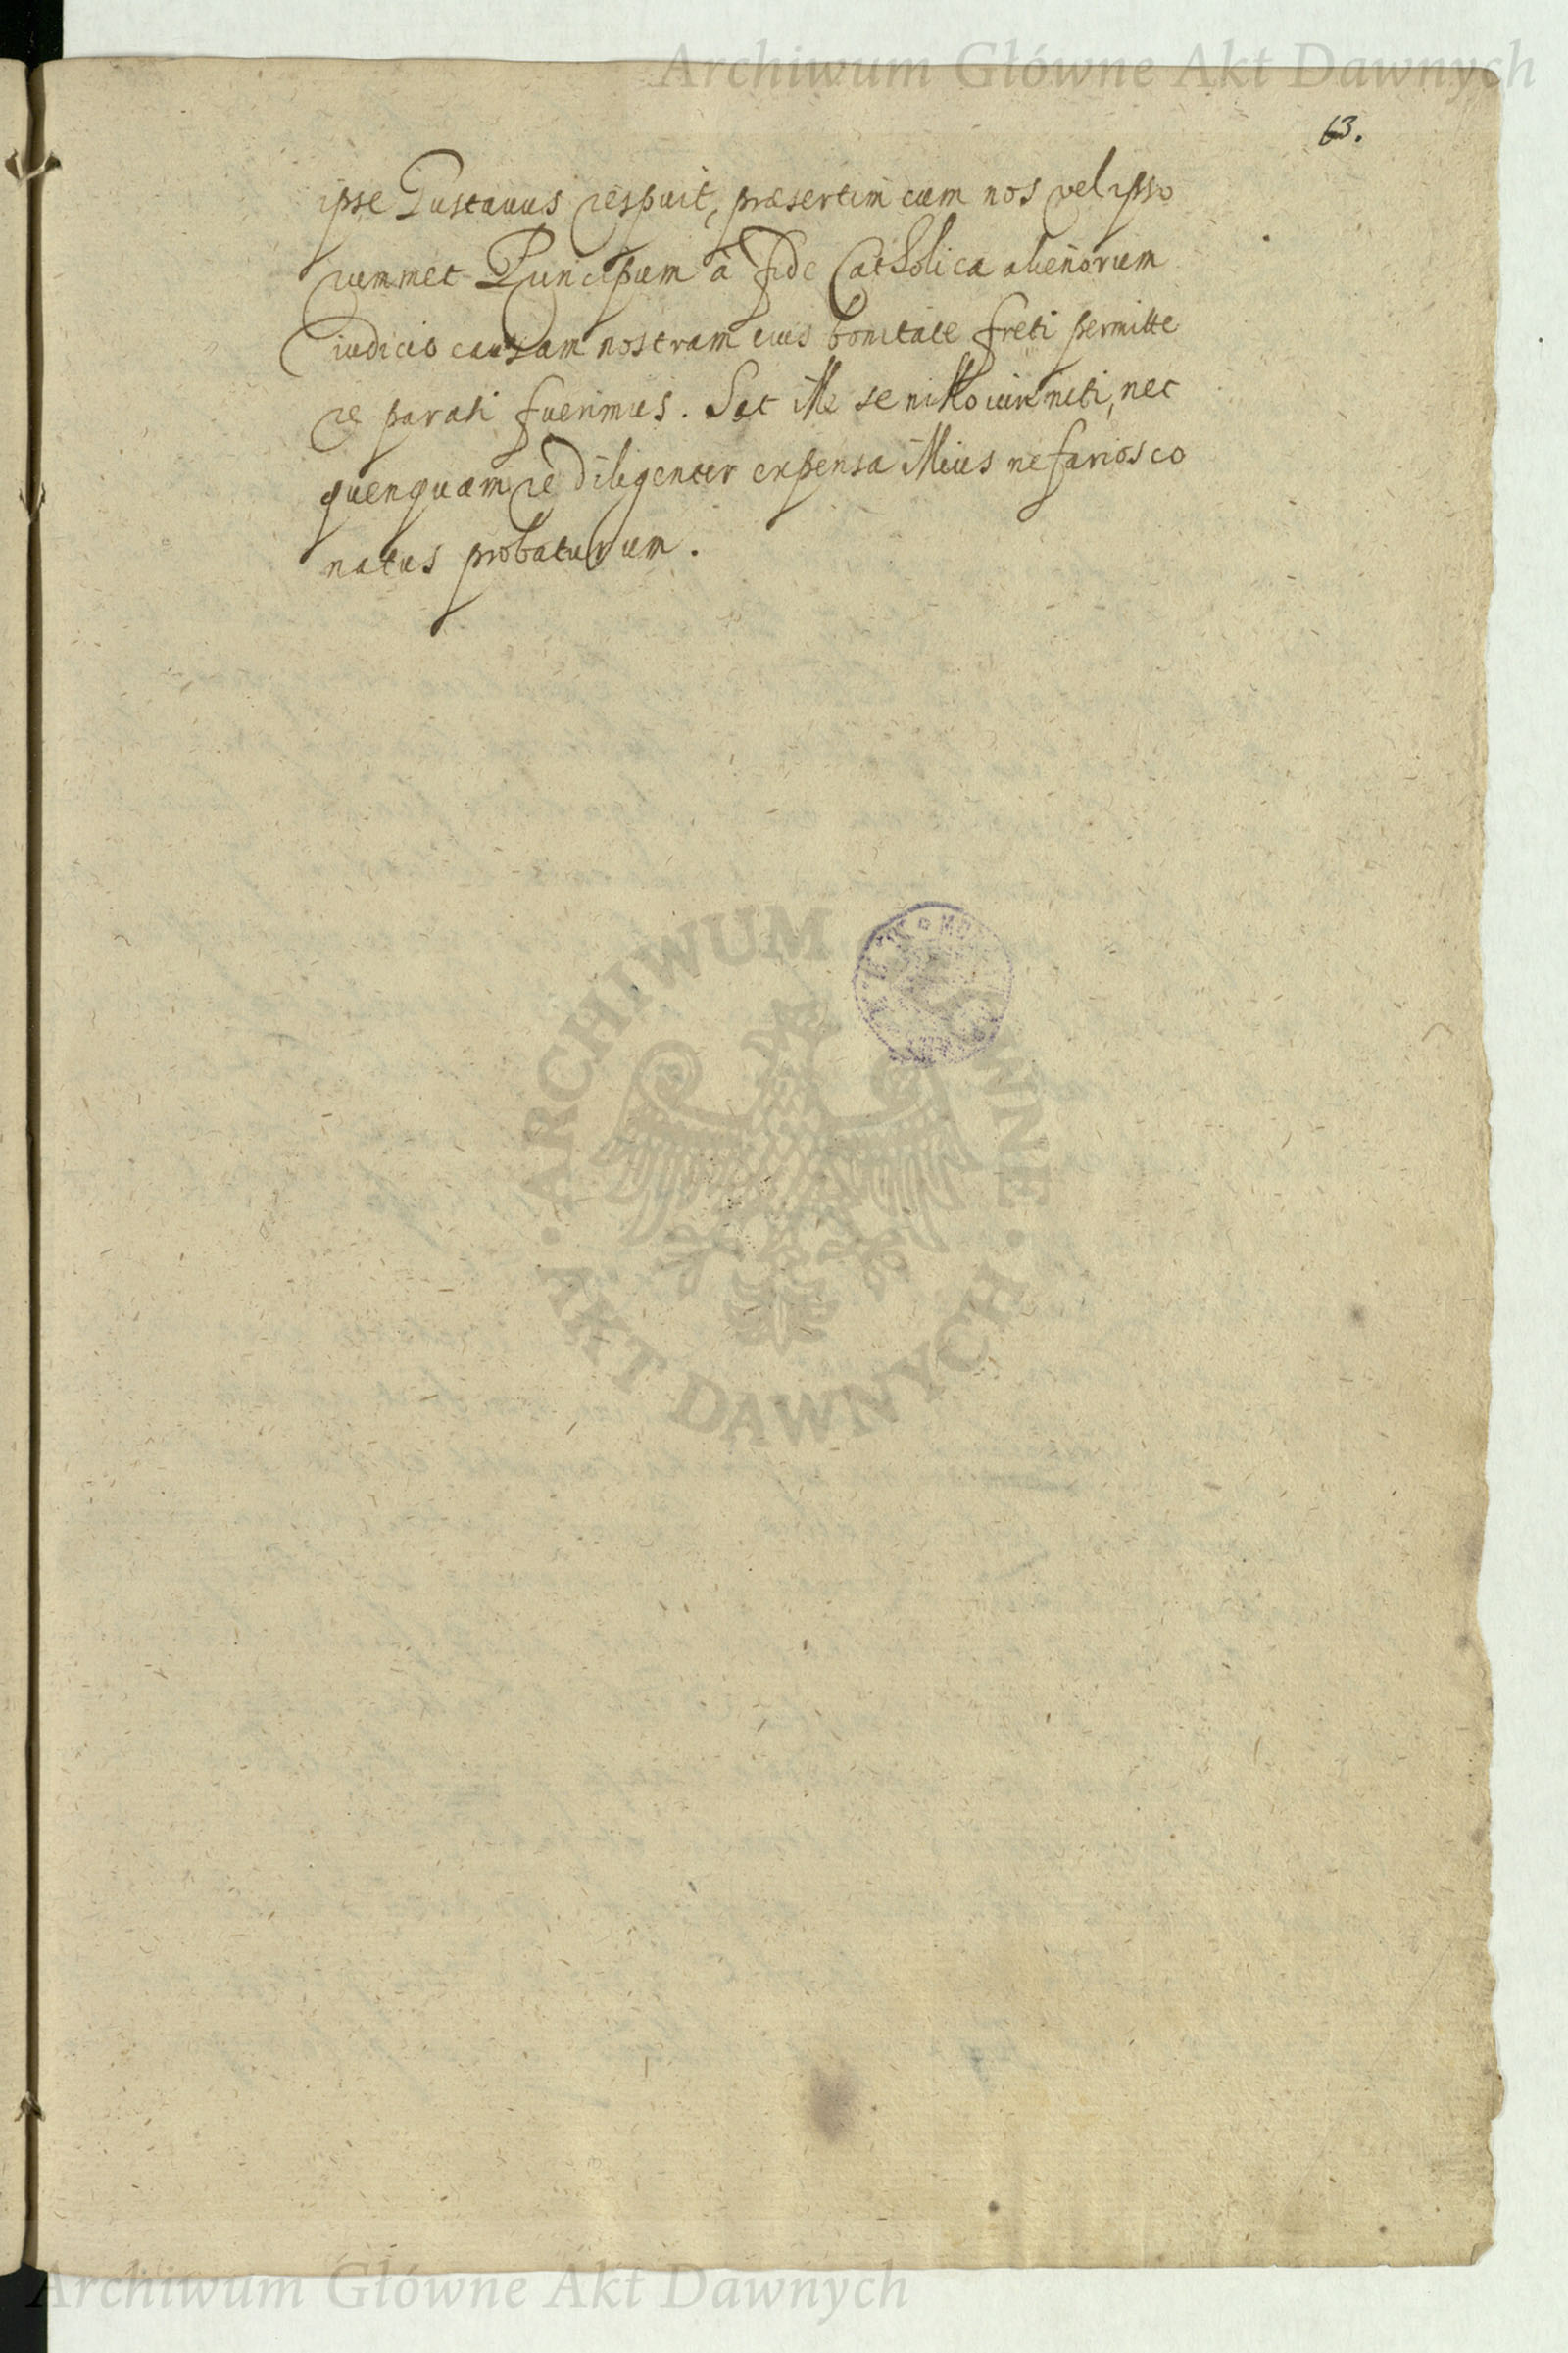 Archiwum Główne Akt Dawnych
63.
ipse Gustauus respuit, præsertim cum nos vel ipso
rummet Principum à fide Catholica alienorum
iudicio causam nostram eius bonitate freti permitte
re parati fuerimus. Scit ille se nullo iure niti, nec
quenquam re diligenter expensa illius nefarios co
natus probaturum.
ARCHIWUM GŁÓWNE
AKT DAWNYCH
Archiwum Główne Akt Dawnych